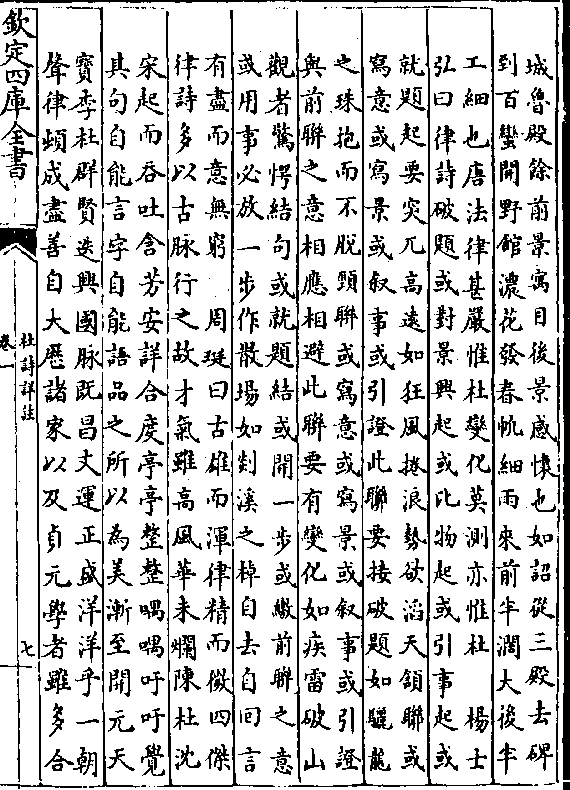 城魯殿餘前景寓目後景感懷也如詔從三殿去碑
到百蠻開野館濃花發春帆細雨來前半濶大後半
工細也唐法律甚嚴惟杜變化莫測亦惟杜　楊士
弘曰律詩破題或對景興起或比物起或引事起或
就題起要突兀高遠如狂風捲浪勢欲滔天頷聯或
寫意或寫景或叙事或引證此聯要接破題如驪龍
之珠抱而不脱頸聯或寫意或寫景或叙事或引證
與前聯之意相應相避此聯要有變化如疾雷破山
觀者驚愕結句或就題結或開一步或繳前聯之意
或用事必放一步作散場如剡溪之棹自去自回言
有盡而意無窮　周珽曰古雄而渾律精而微四傑
律詩多以古脉行之故才氣雖高風華未爛陳杜沈
宋起而吞吐含芳安詳合度亭亭整整喁喁吁吁覺
其句自能言字自能語品之所以為美漸至開元天
寶李杜群賢迭興國脉既昌文運正盛洋洋乎一朝
聲律頓成盡善自大歷諸家以及貞元學者雖多合
欽定四庫全書
杜詩詳註
卷一
七